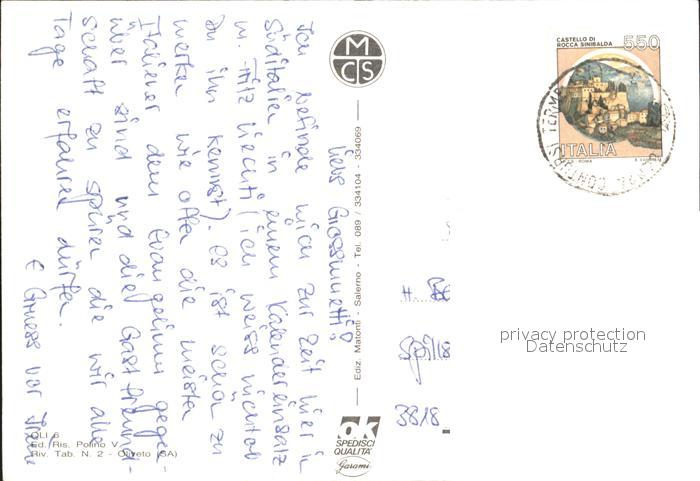 Liebs Grossmuetti!
Ich befinde mich zur Zeit hier in
Süditalien in einem Kalendereinsatz
m. Fritz Liechti (ich weiss nicht ob
Du ihn kennst). Es ist schön zu
merken wie offen die meisten
Italiener dem Evangelium gegen-
über sind und die Gastfreund-
schaft zu spüren die wir alle
Tage erfahren dürfen.
E Gruess vor
MCS
Ediz. Matonti - Salerno - Tel. 089 / 334104 - 334069
OLI 6
Ed. Ris. Polino V.
Riv. Tab. N. 2 - Oliveto (SA)
ok
SPEDISCI
QUALITA'
Garami
CASTELLO DI
ROCCA SINIBALDA
550
ITALIA
CONTURSI TERME
H.
Spills
3818
privacy protection
Datenschutz